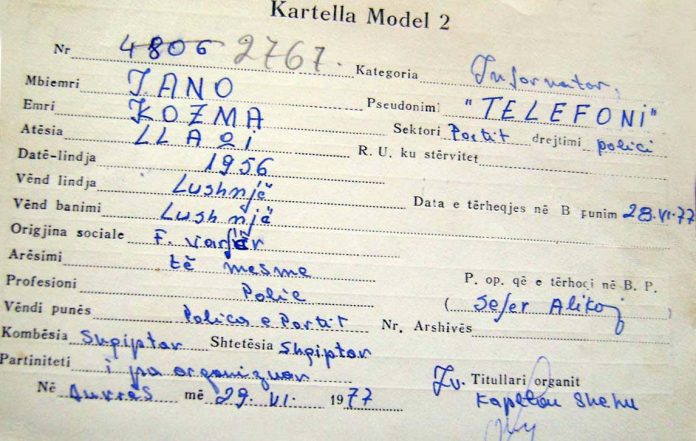 Kartella Model 2
Nr 4806 2767. Kategoria Informator,
Mbiemri JANO Pseudonimi "TELEFONI"
Emri KOZMA Sektori Portit drejtimi polici
Atësia LLAQI R. U. ku stërvitet
Datë-lindja 1956
Vënd lindja Lushnjë Data e tërheqjes në B punim 28.VI.77
Vënd banimi Lushnjë
Origjina sociale F. varfër
Arësimi të mesme P. op. që e tërhoqi në B. P.
Profesioni Polic ( Sefer Alikoj
Vëndi punës Polica e Portit Nr. Arshivës
Kombësia Shqiptar Shtetësia Shqiptar
Partiniteti i pa organizuar Zv. Titullari organit
Në Durrës më 29. VI. 1977 Kapiten Shehu